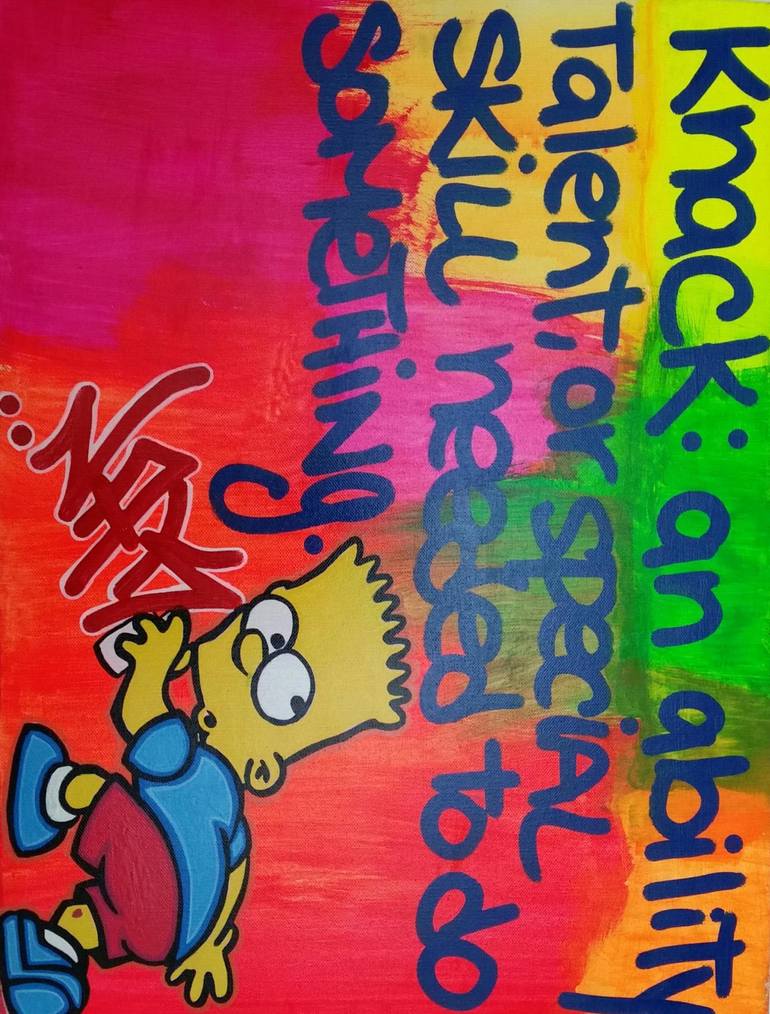 Knack: an ability
Talent: or speciAL
SKiLL needed to do
SoMeTHiNg.